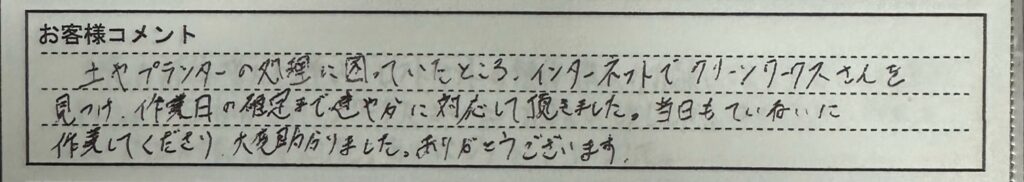 お客様コメント
土やプランターの処理に困っていたところ、インターネットでクリーンワークスさんを
見つけ、作業日の確定まで速やかに対応して頂きました。当日もていねいに
作業してくださり、大変助かりました。ありがとうございます。